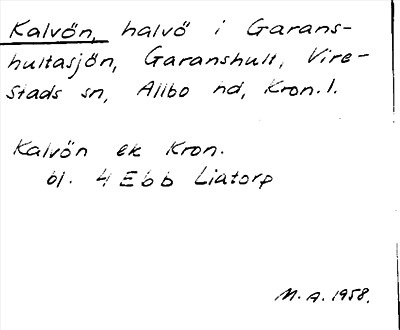 Kalvön, halvö i Garans-
hultasjön, Garanshult, Vire-
stads sn, Allbo hd, Kron. l.
Kalvön ek Kron.
bl. 4 E b b Liatorp
M. A. 1958.